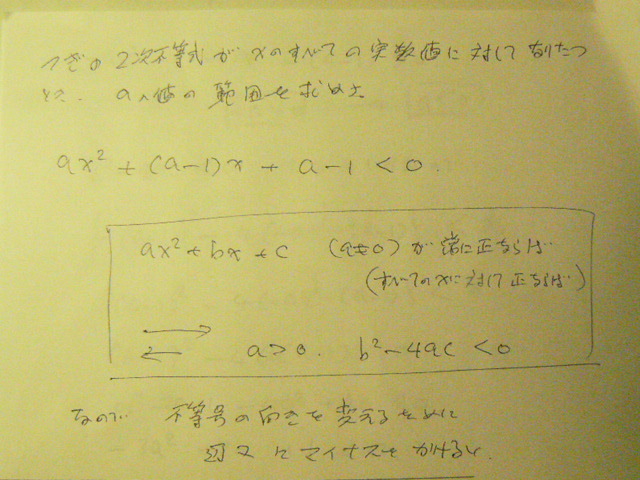 つぎの2次不等式がxのすべての実数値に対してなりたつ
とき、aの値の範囲を求めよ
ax² + (a-1)x + a-1 < 0.
ax² + bx + c (a≠0) が常に正ならば
(すべてのxに対して正ならば)
→
← a>0. b²-4ac <0
なので 不等号の向きを変えるために
辺々にマイナスをかけると